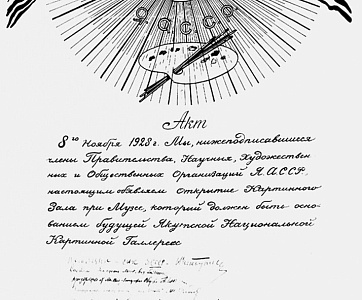 ЯАССР
Акт
8го Ноября 1928 г. Мы, нижеподписавшиеся
члены Правительства, Научных, Художествен
ных и Общественных Организаций Я.А.С.С.Р.
настоящим объявляем открытие Картинного
Зала при Музее, который должен быть осно-
ванием будущей Якутской Национальной
Картинной Галлереи